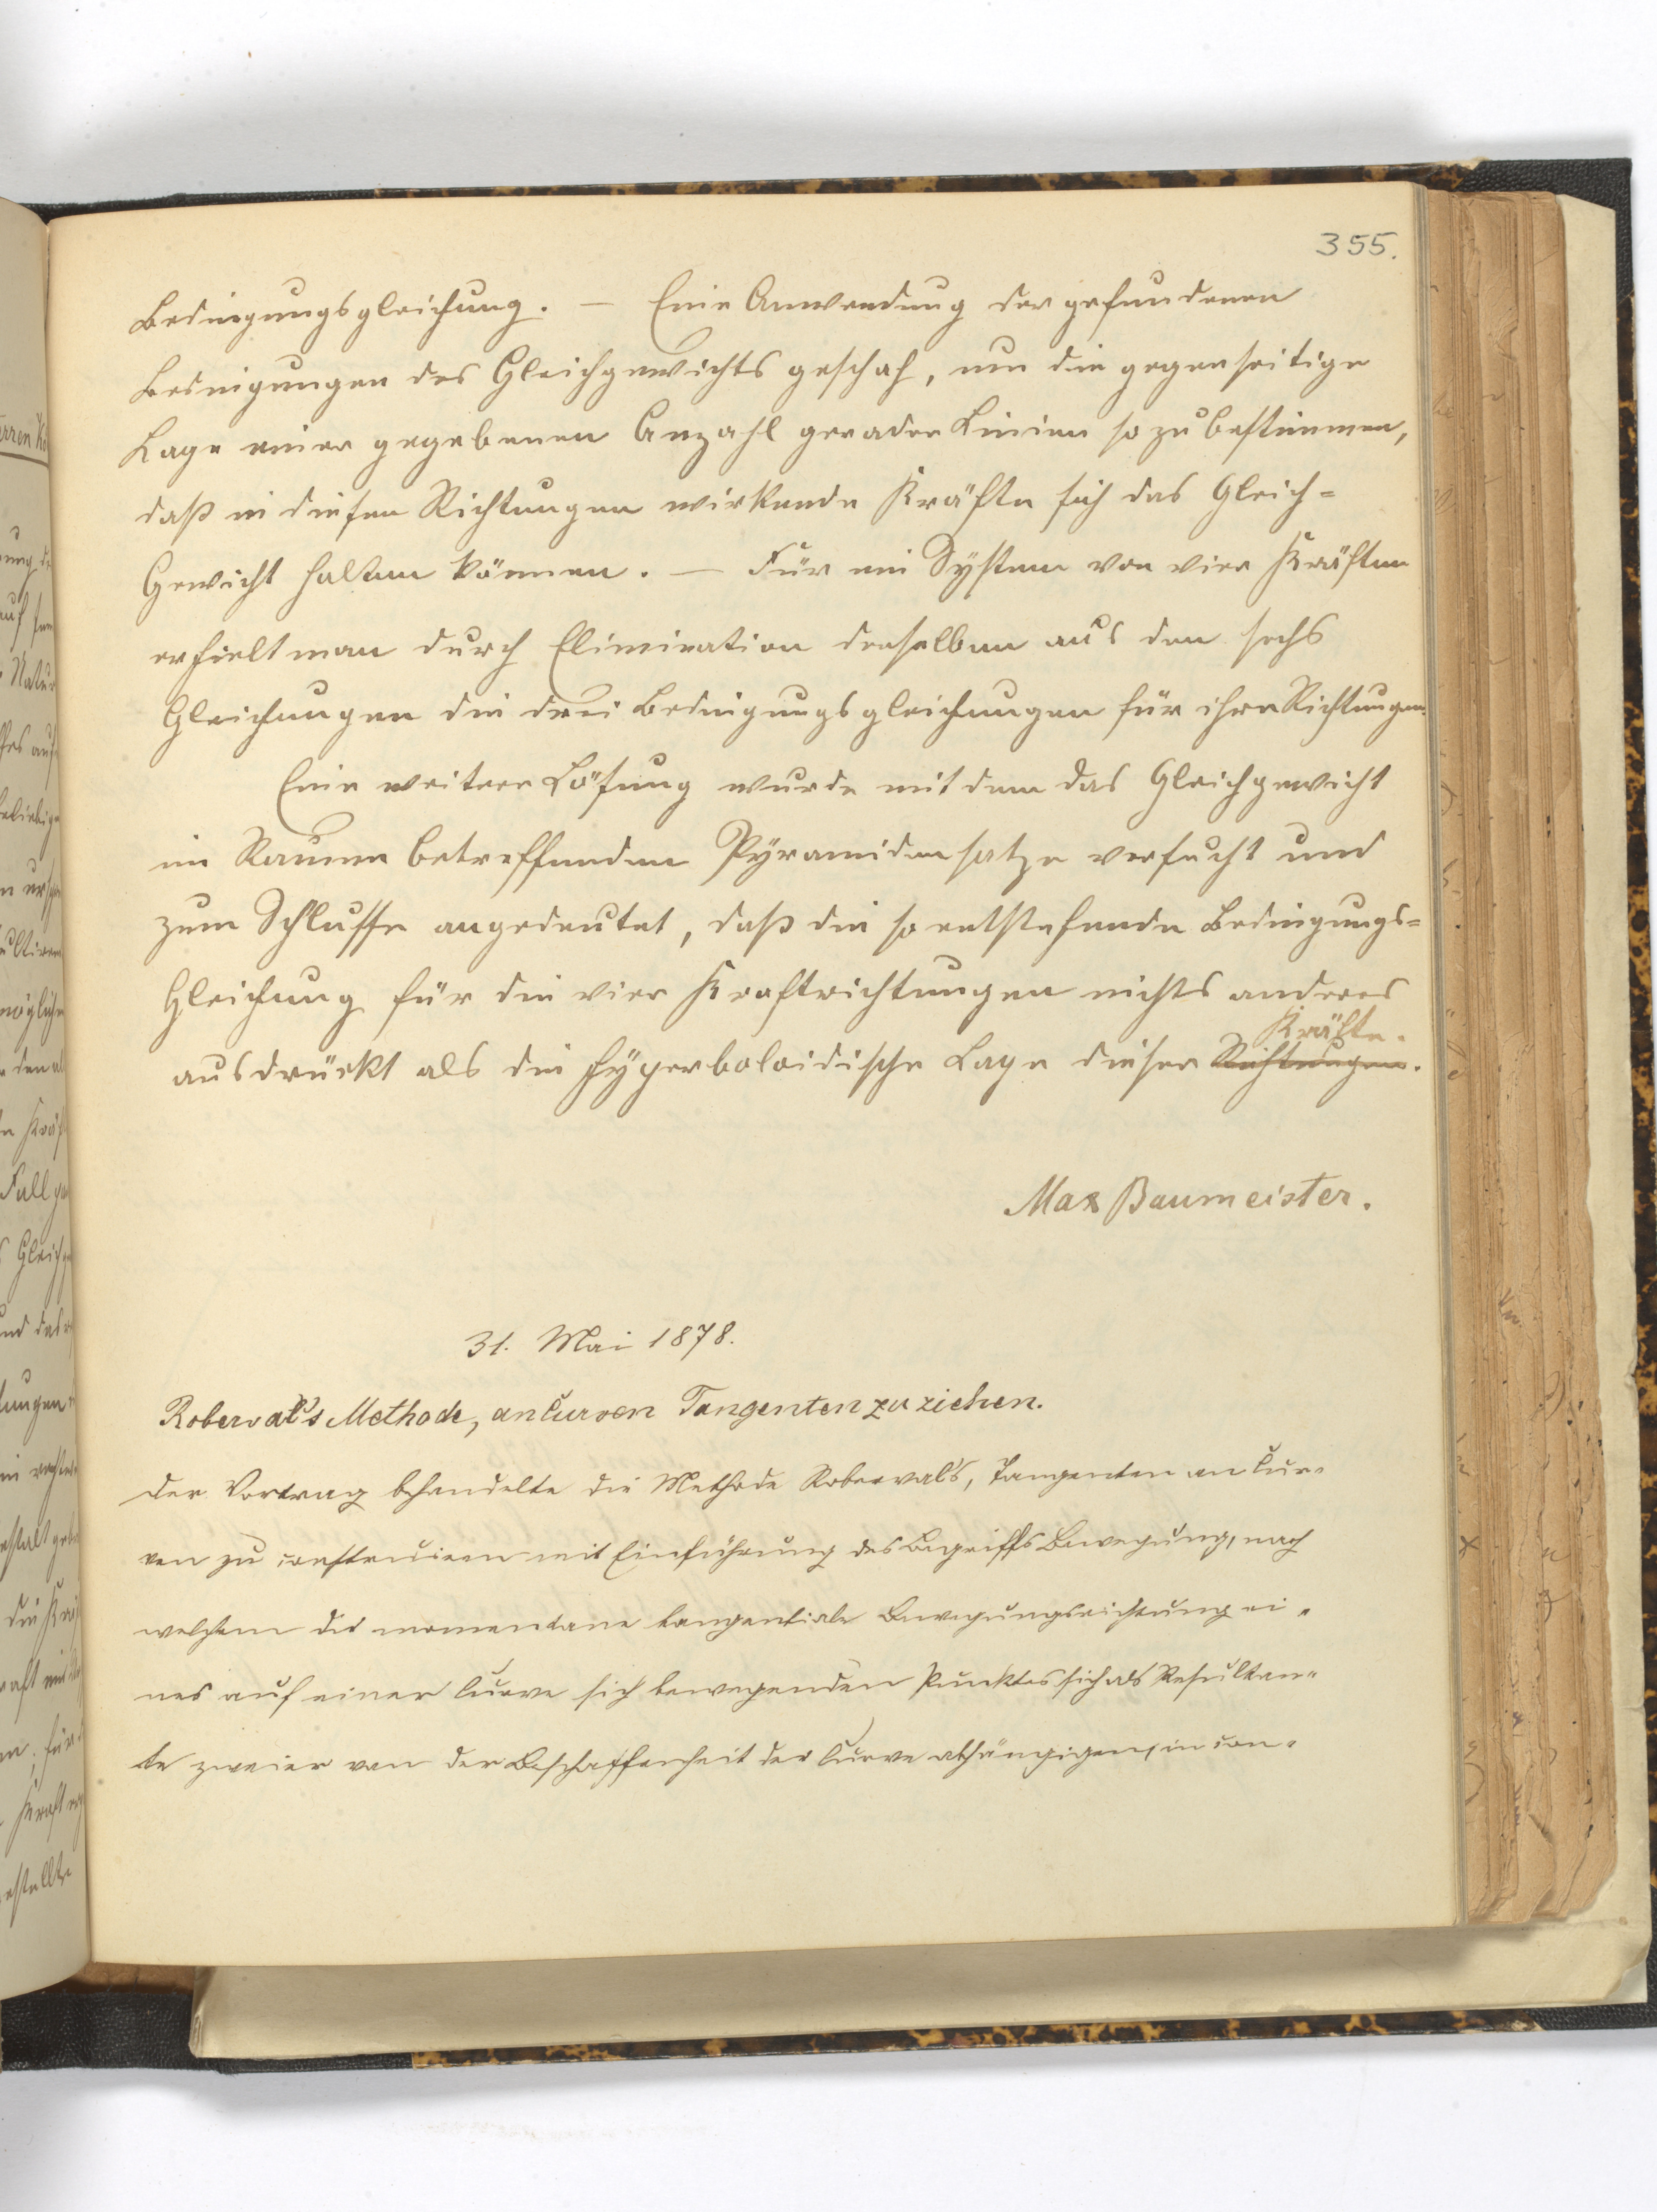 355.
Bedingungsgleichung. — Eine Anwendung der gefundenen
Bedingungen des Gleichgewichts geschah, um die gegenseitige
Lage einer gegebenen Anzahl gerader Linien so zu bestimmen,
daß in diesen Richtungen wirkende Kräfte sich das Gleich=
Gewicht halten können. — Für ein System von vier Kräften
erhielt man durch Elimination derselben aus den sechs
Gleichungen die drei Bedingungsgleichungen für ihre Richtungen.
Eine weitere Lösung wurde mit dem das Gleichgewicht
im Raume betreffenden Pyramidensatze versucht und
zum Schlusse angedeutet, daß die so entstehende Bedingungs=
Gleichung für die vier Kraftrichtungen nichts anderes
Kräfte.
ausdrückt als die hyperboloidische Lage dieser Richtungen.
Max Baumeister.
31. Mai 1878.
Roberval's Methode, an Curven Tangenten zu ziehen.
Der Vortrag behandelte die Methode Roberval's, Tangenten an Cur=
ven zu construiren mit Einführung des Begriffs Bewegung, nach
welchem die momentane tangentiale Bewegungsrichtung ei=
nes auf einer Curve sich bewegenden Punktes sich als Resultan=
te zweier von der Beschaffenheit der Curve abhängigen, in con=